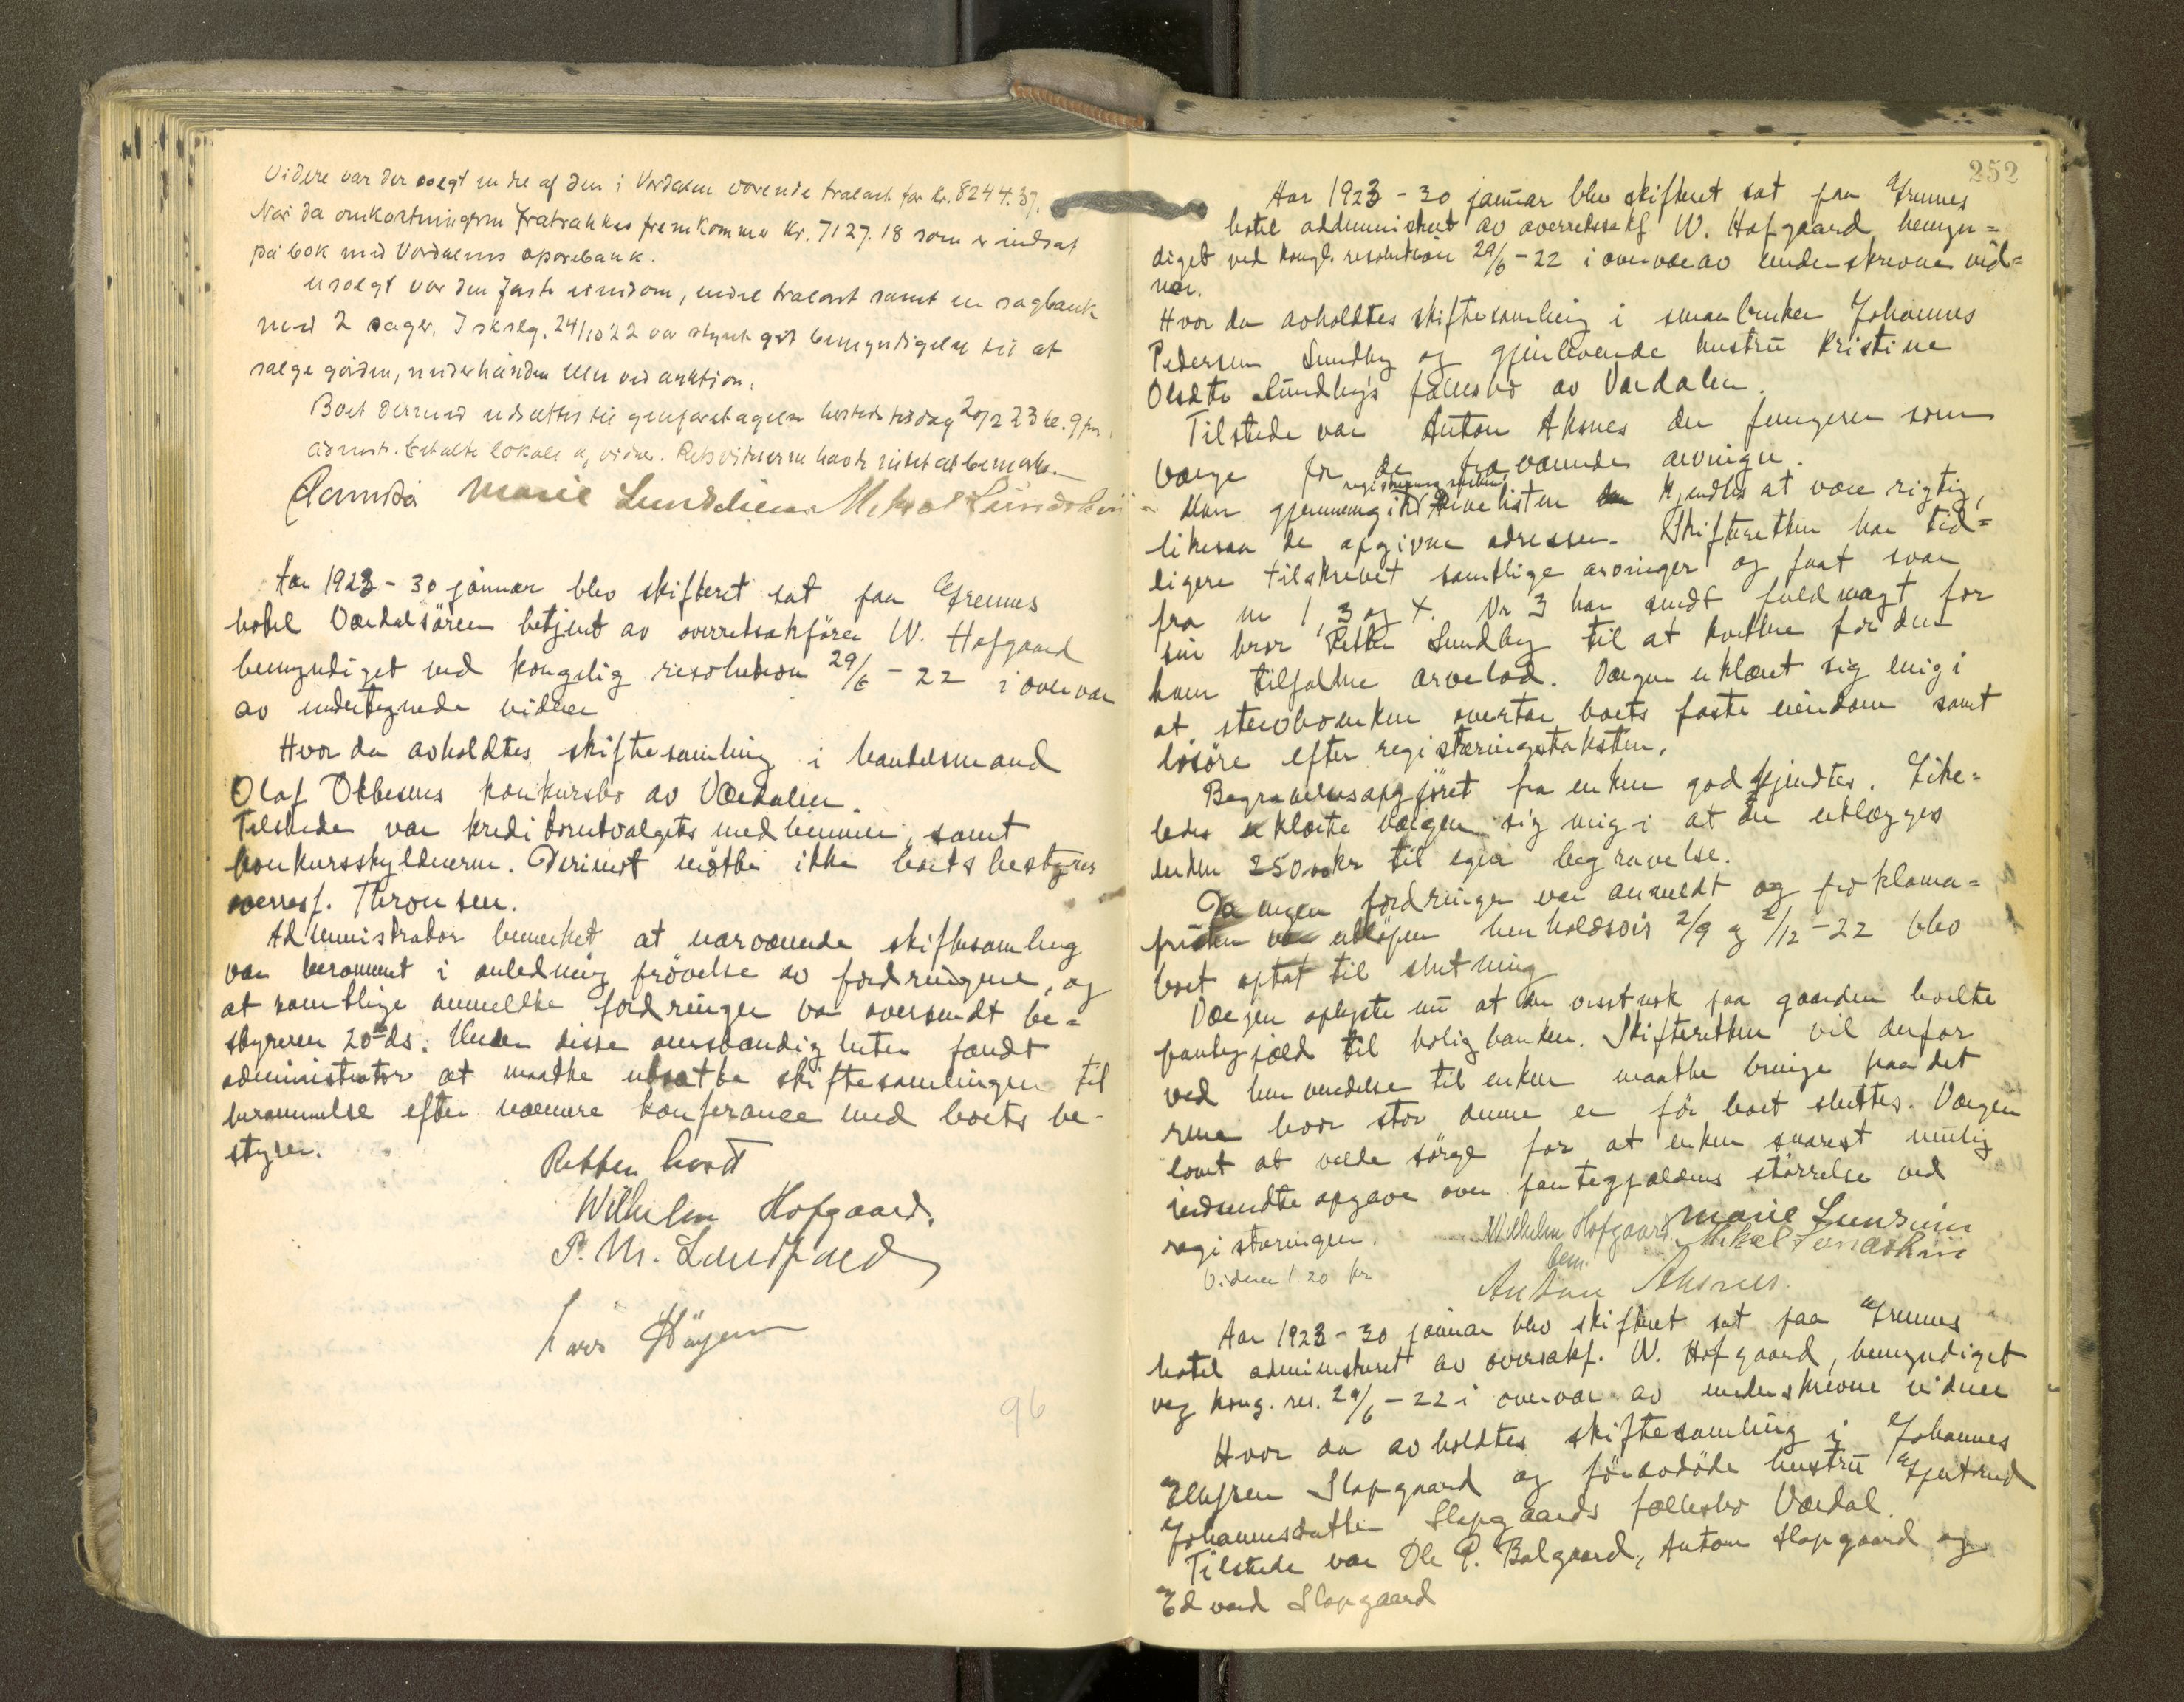 Videre var der solgt endel af den i Verdalen værende trælast for kr. 8244.37.
Når da omkostningerne fratrækkes fremkommer kr. 7127.18 som er indsat
på bok med Værdalens sparebank.
Usolgt var den faste eiendom, endel trælast samt en sagbænk
med 2 sager. I sksmlg. 24/10 22 var styret git bemyndigelse til at
sælge gården, underhånden eller ved auktion.
Boet dermed udsættes til gjenforetagelse hersteds tisdag 20/2 23 kl. 9 fm.
Admstr. betalte lokale og vidner. Retsvidnerne havde intet at bemerke.
Marie Lundshim Mikal Lundshim
Aar 1923 - 30 januar blev skifteret sat paa Grennes
hotel Værdalsören betjent av overretsakförer W. Hofgaard
bemyndiget ved kongelig resolution 29/6 - 22 i overvær
av undertegnede vidner
Hvor da avholdtes skiftesamling i handelsmand
Olaf Ebbesens konkursbo av Værdalen.
Tilstede var kreditorutvalgets medlemmer, samt
konkursskyldneren. Derimot mötte ikke boets bestyrer
overrsf. Thronsen.
Administrator bemerket at nærværende skiftesamling
var berammet i anledning prövelse av fordringene, og
at samtlige anmeldte fordringer var oversendt be=
styreren 20de ds. Under disse omstændigheter fandt
administrator at maatte utsætte skiftesamlingen til
berammelse efter nærmere konferance med boets be-
styrer.
Retten hævet
Wilhelm Hofgaard.
P. M. Landfald
Lars
96
252
Aar 1923 - 30 januar blev skifteret sat paa Grennes
hotel addministrert av overretssakf W. Hofgaard bemyn=
diget ved kongl. resolution 29/6 - 22 i overvær av underskrevne vid=
ner.
Hvor da avholdtes skiftesamling i smaabruker Johannes
Pedersen Sundby og gjenlevende hustru Kristine
Olsdtr Sundby's fællesbo av Værdalen.
Tilstede var Anton Aksnes der fungerer som
værge for de fraværende arvinger.
registrering
Man gjennemgik arvelisten kjendtes at være rigtig,
likesaa de opgivne adresser. Skifteretten har tid=
ligere tilskrevet samtlige arvinger og faat svar
fra nr 1, 3 og 4. Nr 3 har sendt fuldmagt for
sin bror Petter Sundby til at kvittere for den
ham tilfaldne arvelod. Værgen erklæret sig enig i
at stervboenken overtar boets faste eiendom samt
lösöre efter registreringstaksten.
Begravelsesopgjöret fra enken godkjendtes. Like=
ledes erklærte værgen sig enig i at der utlægges
enken 250 00 kr til egen begravelse.
Da ingen fordringer var anmeldt og proklama=
fristen var utlöpen henholdsvis 2/9 og 2/12 - 22 blev
boet optat til slutning
Værgen oplyste nu at der visstnok paa gaarden hvilte
pantegjæld til boligbanken. Skifteretten vil derfor
ved henvendelse til enken maatte bringe paa det
rene hvor stor denne er för boet sluttes. Værgen
lovet at ville sörge for at enken snarest mulig
indsendte opgave over pantegjældens störrelse ved
registreringen. Wilhelm Hofgaard Marie Lunshim
bem. Mikal Lundshim
Vidner 1.20 kr
Anton Aksnes.
Aar 1923 - 30 januar blev skifteret sat paa Grennes
hotel administreret av oversakf. W. Hofgaard, bemyndiget
veg kong. res. 29/6 - 22 i overvær av underskrevne vidner
Hvor da avholdtes skiftesamling i Johannes
Ellefsen Slapgaard og föravdöde hustru Gjertrud
Johannesdatter Slapgaards fællesbo Værdal.
Tilstede var Ole P. Balgaard, Anton Slapgaard og
Edvard Slapgaard